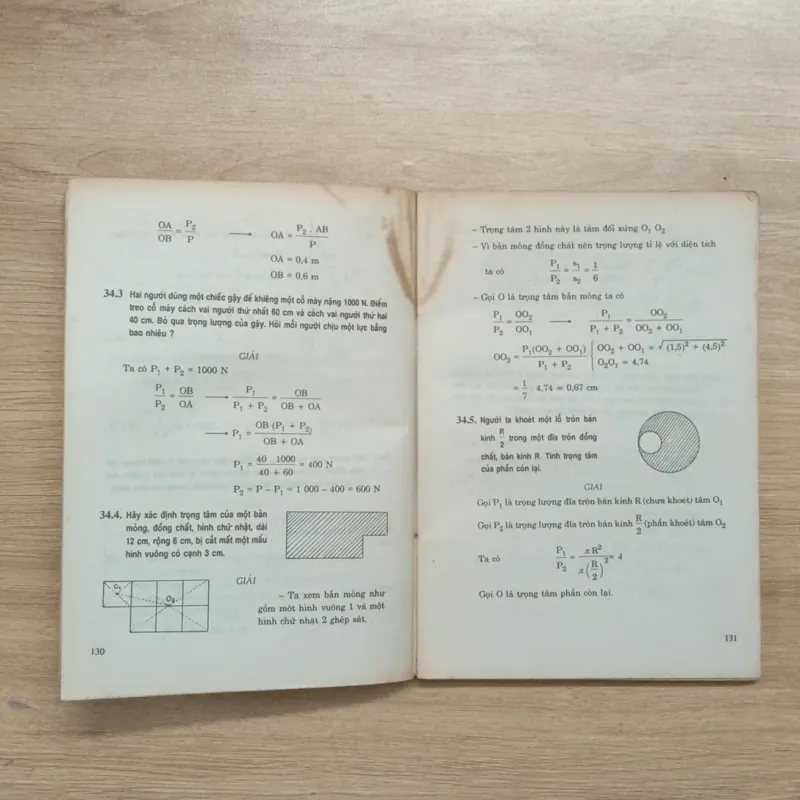 OA/OB = P₂/P ⟶ OA = P₂ . AB/P
OA = 0,4 m
OB = 0,6 m
34.3 Hai người dùng một chiếc gậy để khiêng một cỗ máy nặng 1000 N. Điểm
treo cỗ máy cách vai người thứ nhất 60 cm và cách vai người thứ hai
40 cm. Bỏ qua trọng lượng của gậy. Hỏi mỗi người chịu một lực bằng
bao nhiêu ?
GIẢI
Ta có P₁ + P₂ = 1000 N
P₁/P₂ = OB/OA ⟶ P₁/(P₁ + P₂) = OB/(OB + OA)
⟶ P₁ = OB (P₁ + P₂)/(OB + OA)
P₁ = 40 . 1000/(40 + 60) = 400 N
P₂ = P – P₁ = 1 000 - 400 = 600 N
34.4. Hãy xác định trọng tâm của một bản
mỏng, đồng chất, hình chữ nhật, dài
12 cm, rộng 6 cm, bị cắt mất một mẩu
hình vuông có cạnh 3 cm.
GIẢI
O₁
O₂
– Ta xem bản mỏng như
gồm một hình vuông 1 và một
hình chữ nhật 2 ghép sát.
130
– Trọng tâm 2 hình này là tâm đối xứng O₁ O₂
– Vì bản mỏng đồng chất nên trọng lượng tỉ lệ với diện tích
ta có P₁/P₂ = s₁/s₂ = 1/6
– Gọi O là trọng tâm bản mỏng ta có
P₁/P₂ = OO₂/OO₁ ⟶ P₁/(P₁ + P₂) = OO₂/(OO₂ + OO₁)
OO₂ = P₁(OO₂ + OO₁)/(P₁ + P₂) { OO₂ + OO₁ = √((1,5)² + (4,5)²)
O₂O₁ = 4,74
= 1/7 . 4,74 = 0,67 cm
34.5. Người ta khoét một lỗ tròn bán
kính R/2 trong một đĩa tròn đồng
chất, bán kính R. Tính trọng tâm
của phần còn lại.
GIẢI
Gọi P₁ là trọng lượng đĩa tròn bán kính R (chưa khoét) tâm O₁
Gọi P₂ là trọng lượng đĩa tròn bán kính R/2 (phần khoét) tâm O₂
Ta có P₁/P₂ = πR²/π(R/2)² = 4
Gọi O là trọng tâm phần còn lại.
131